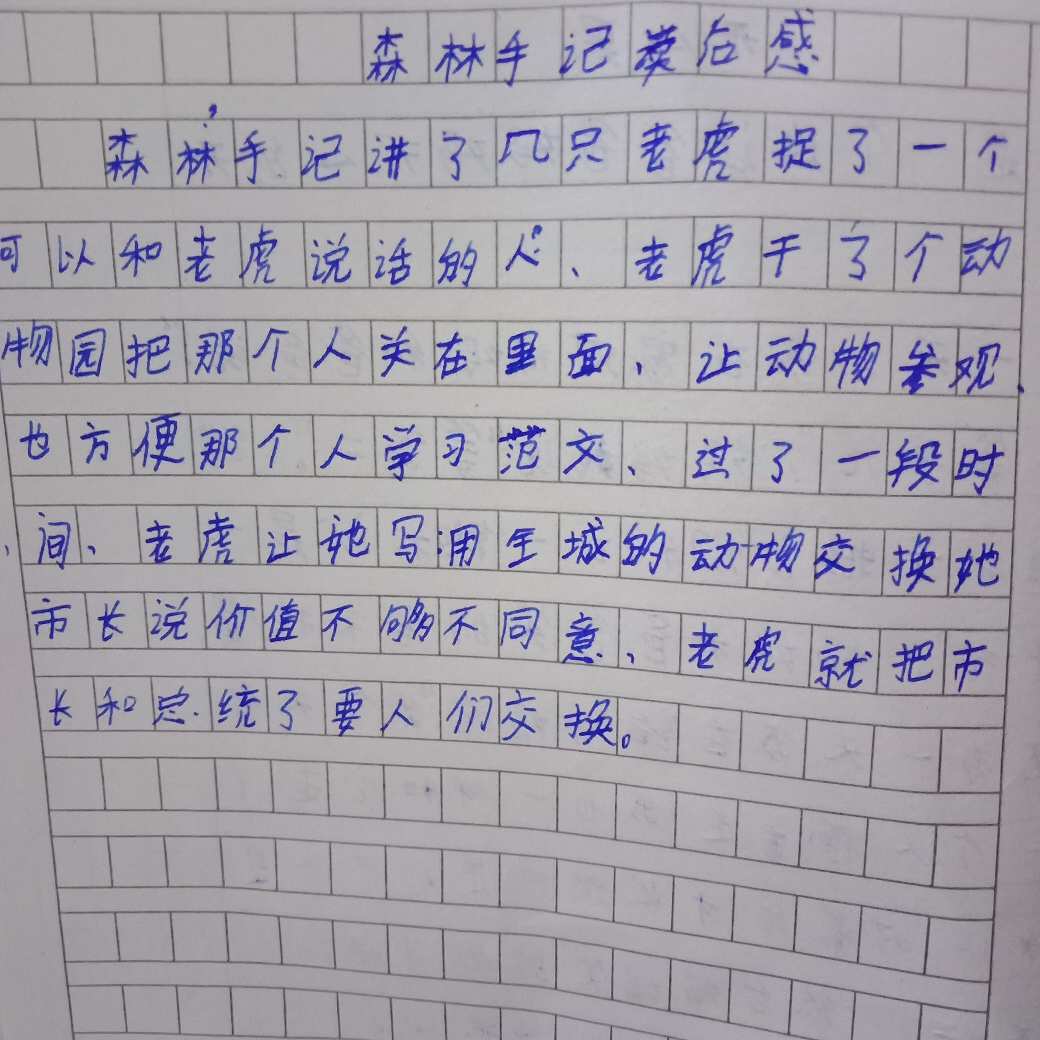 森林手记读后感
森林手记讲了几只老虎捉了一个
可以和老虎说话的人、老虎干了个动
物园把那个人关在里面、让动物参观、
也方便那个人学习范文、过了一段时
间、老虎让她写用全城的动物交换她
市长说价值不够不同意、老虎就把市
长和总统了要人们交换。